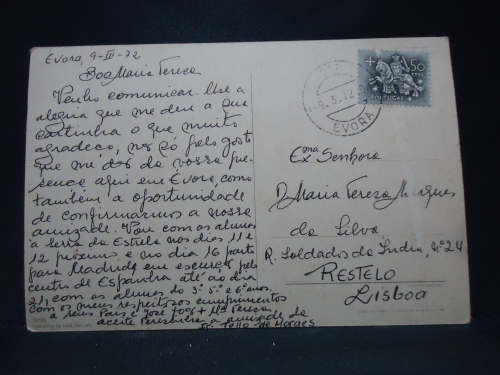 Évora, 9-III-72
Boa Maria Teresa
Venho comunicar-lhe a
alegria que me deu a sua
cartinha o que muito
agradeço, não só pelo gosto
que me dás da vossa pre-
sença aqui em Évora, como
também a oportunidade
de confirmarmos a nossa
amizade. Vou com os alunos
à Serra da Estrela nos dias 11 e
12 próximos e no dia 16 parto
para Madrid em escursão pelo
centro de Espanha até ao dia
21, com os alunos do 3º 5º e 6º anos.
com os meus respeitosos cumprimentos
a seus Pais e José João + Mª Teresa
aceite a amizade de
Tello de Moraes
+ 1$50
PORTUGAL
9.3.72
ÉVORA
Exma Senhora
D. Maria Teresa Marques
da Silva
R. Soldados da India, nº 24
RESTELO
Lisboa